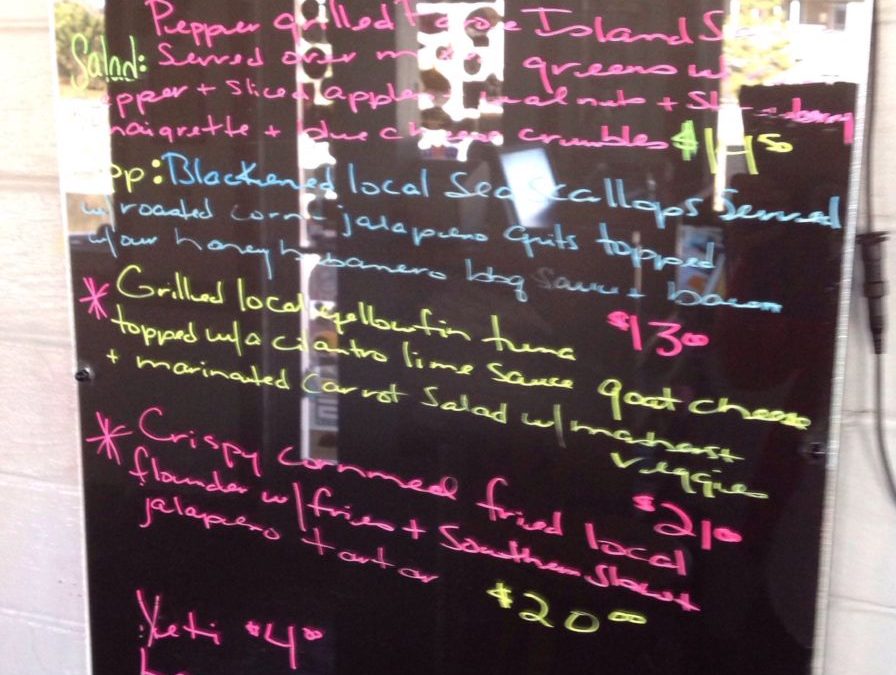 Pepper grilled Island
Salad: Served over greens w/
pepper + sliced apples walnuts +
naigrette + blue cheese crumbles $14 50
pp: Blackened local Sea Scallops Served
w/roasted corn jalapeno grits topped
w/our honey habanero bbq sauce + bacon
$13 00
* Grilled local yellowfin tuna
topped w/a cilantro lime sauce goat cheese
+ marinated carrot salad w/ veggies
$21 00
* Crispy cornmeal fried local
flounder w/fries + Southern slaw +
jalapeno tartar
$20 00
Yeti $4 00